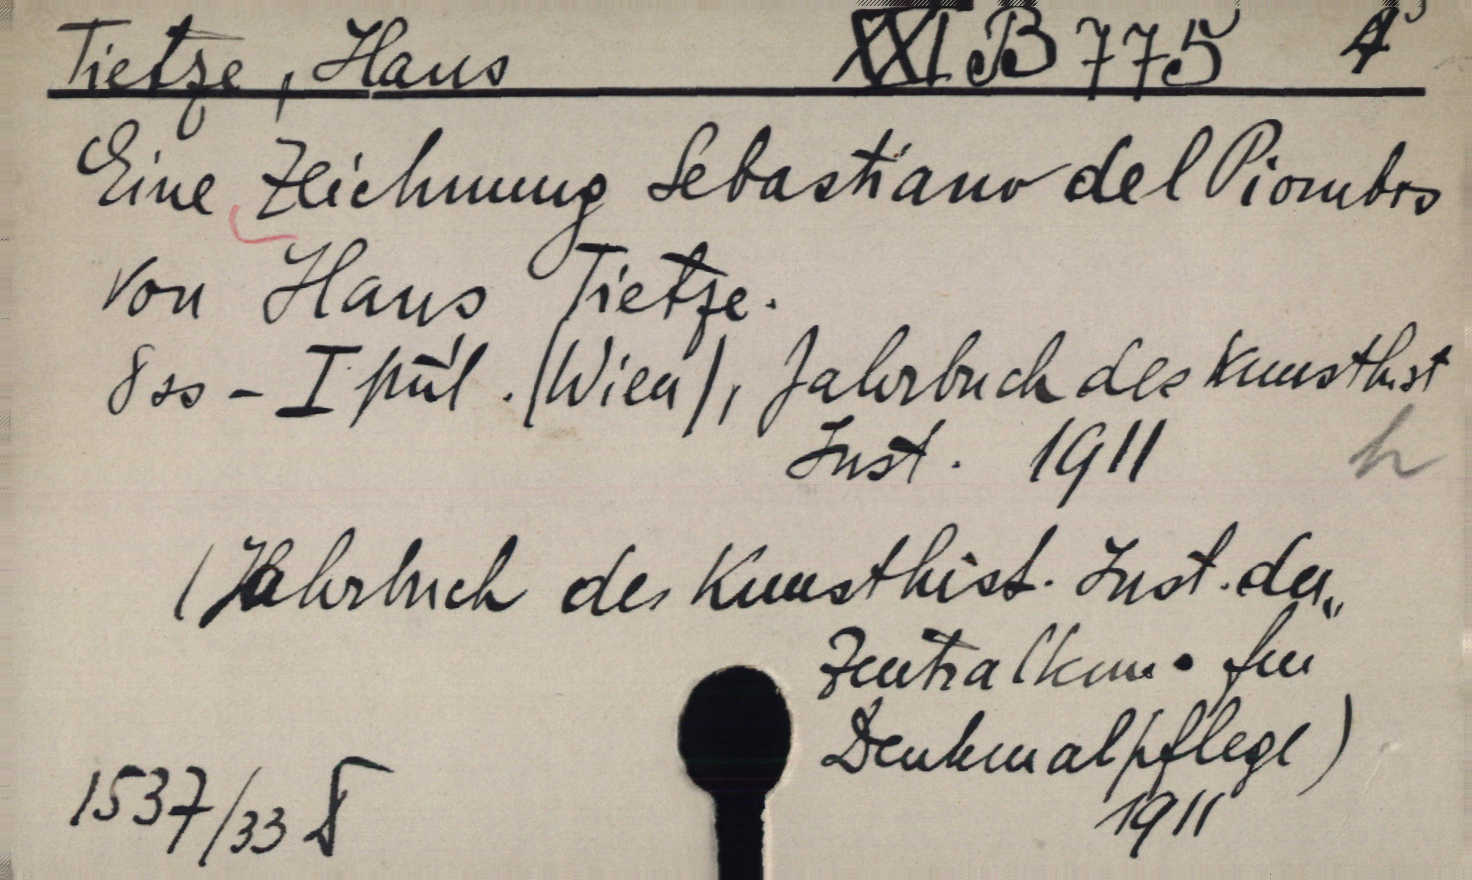 Tietze, Hans XXI B 775 4°
Eine Zeichnung Sebastiano del Piombos
von Hans Tietze.
8 ss - I púl. (Wien), Jahrbuch des Kunsthist
Inst. 1911
h
(Jahrbuch des Kunsthist. Inst. der
Zentralkom. für
Denkmalpflege)
1911
1537/33